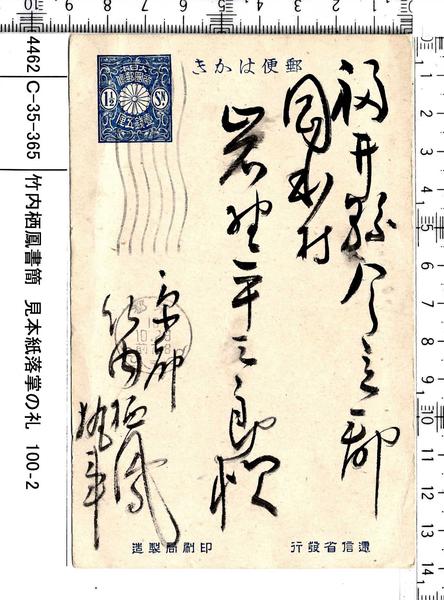 4462 C-35-365 竹内栖鳳書簡 見本紙落掌の礼 100-2
郵便はかき
大日本帝國郵便
1½ Sn.
壹錢五厘
福井縣今立郡
岡本村
岩野平三郎様
京都
竹内栖鳳
逓信省發行
印刷局製造